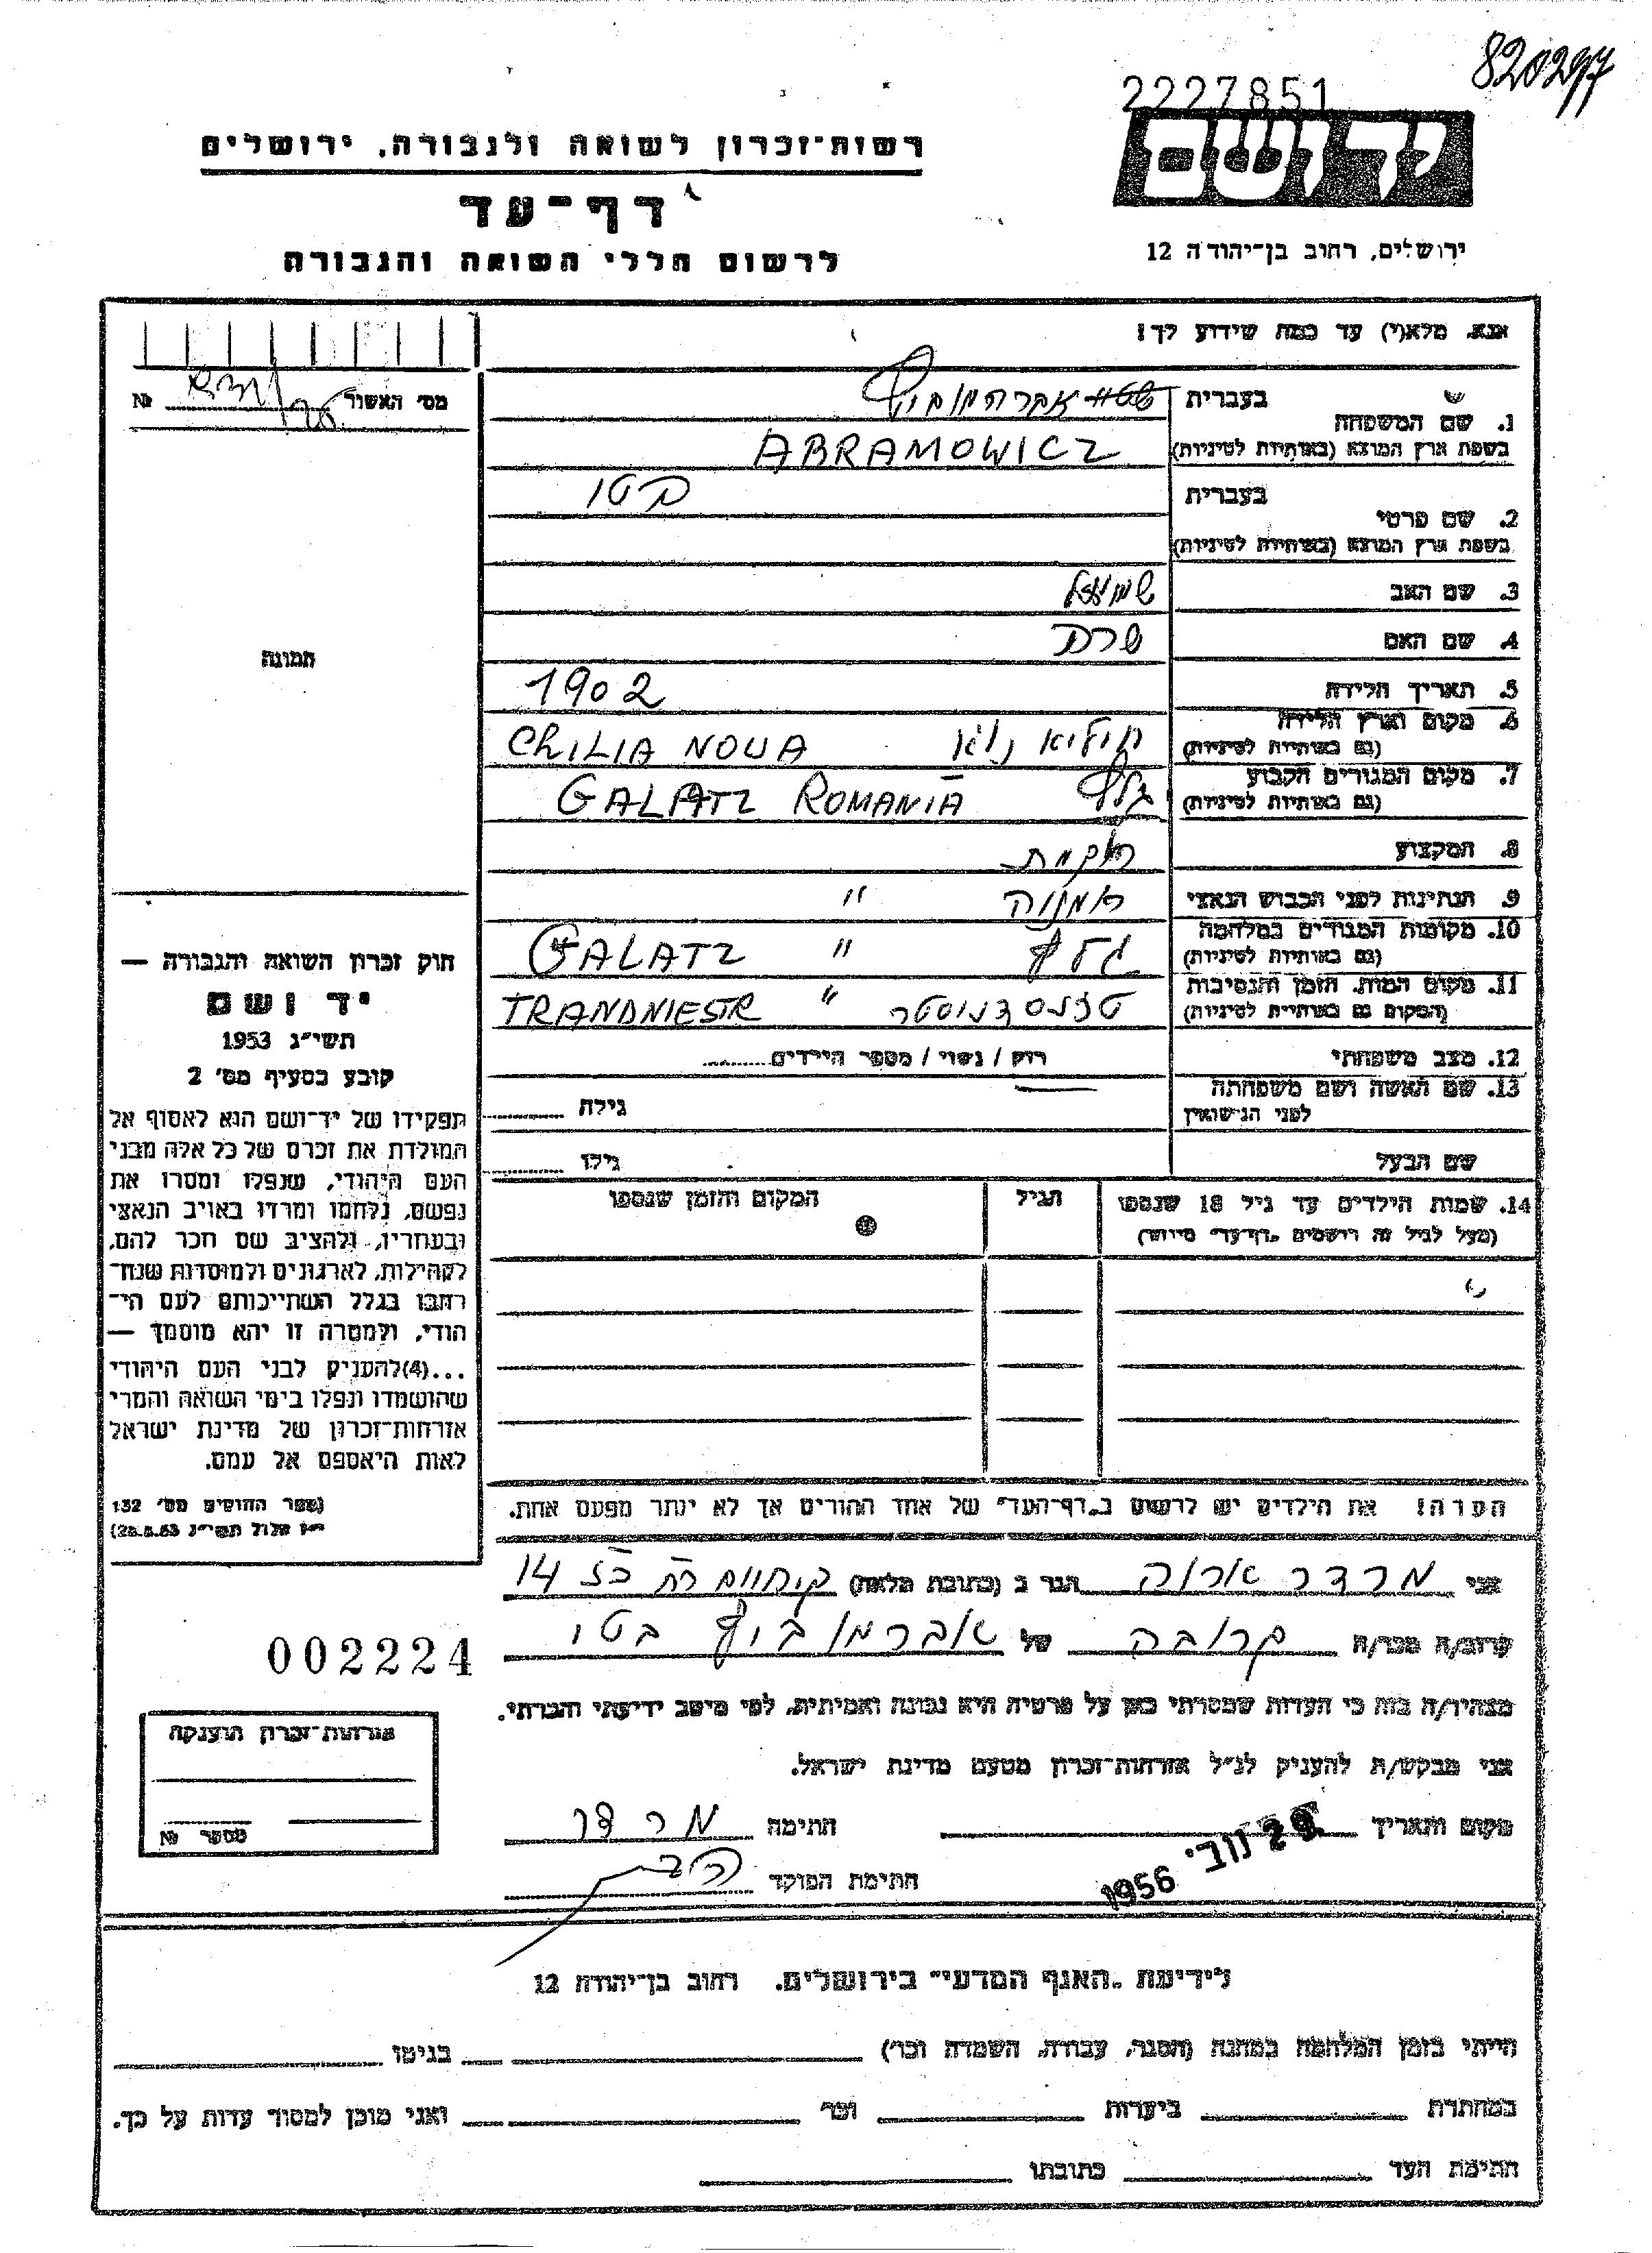 820297
2227851
יד ושם
ירושלים, רחוב בן־יהודה 12
רשות־זכרון לשואה ולגבורה, ירושלים
דף־עד
לרשום חללי השואה והגבורה
אנא, מלא(י) עד כמה שידוע לך!
מס׳ האשור №
1. שם המשפחה
בעברית אברהמוביץ
בשפת ארץ המוצא (באותיות לטיניות) ABRAMOWICZ
2. שם פרטי
בעברית בטי
בשפת ארץ המוצא (באותיות לטיניות)
3. שם האב שמואל
4. שם האם שרה
5. תאריך הלידה 1902
6. מקום וארץ הלידה
(גם באותיות לטיניות) CHILIA NOUA
7. מקום המגורים הקבוע
(גם באותיות לטיניות) גלץ GALATZ ROMANIA
8. המקצוע
9. הנתינות לפני הכבוש הנאצי רומניה "
10. מקומות המגורים במלחמה
(גם באותיות לטיניות) גלץ " GALATZ
11. מקום המות, הזמן והנסיבות
(המקום גם באותיות לטיניות) טרנסדניסטר " TRANDNIESTR
12. מצב משפחתי רווק / נשוי / מספר הילדים
13. שם האשה ושם משפחתה
לפני הנישואין גילה
שם הבעל גילו
14. שמות הילדים עד גיל 18 שנספו
(מעל לגיל זה רושמים „דף־עד״ מיוחד)
הגיל
המקום והזמן שנספו
הערה! את הילדים יש לרשום ב„דף־העד״ של אחד ההורים אך לא יותר מפעם אחת.
תמונה
חוק זכרון השואה והגבורה —
יד ושם
תשי״ג 1953
קובע בסעיף מס׳ 2
תפקידו של יד־ושם הוא לאסוף אל
המולדת את זכרם של כל אלה מבני
העם היהודי, שנפלו ומסרו את
נפשם, נלחמו ומרדו באויב הנאצי
ובעוזריו, ולהציב שם וזכר להם,
לקהילות, לארגונים ולמוסדות שנח־
רבו בגלל השתייכותם לעם הי־
הודי, ולמטרה זו יהא מוסמך —
...(4)להעניק לבני העם היהודי
שהושמדו ונפלו בימי השואה והמרי
אזרחות־זכרון של מדינת ישראל
לאות היאספם אל עמם.
(ספר החוקים מס׳ 132
י״ז אלול תשי״ג 28.8.53)
אני מרדר הגר ב (כתובת מלאה) 14
קרוב/ה מכר/ה קרובה של אברמוביץ בטי
מצהיר/ה בזה כי העדות שמסרתי כאן על פרטיה היא נכונה ואמיתית, לפי מיטב ידיעתי והכרתי.
אני מבקש/ת להעניק לנ״ל אזרחות־זכרון מטעם מדינת ישראל.
מקום ותאריך 29 נוב׳ 1956 חתימה מרדר
חתימת הפוקד
002224
אזרחות־זכרון הוענקה
מספר №
לידיעת „האגף המדעי״ בירושלים, רחוב בן־יהודה 12
הייתי בזמן המלחמה במחנה (הסגר, עבודה, השמדה וכו׳) בגיטו
במחתרת ביערות וכו׳ ואני מוכן למסור עדות על כך.
חתימת העד כתובתו